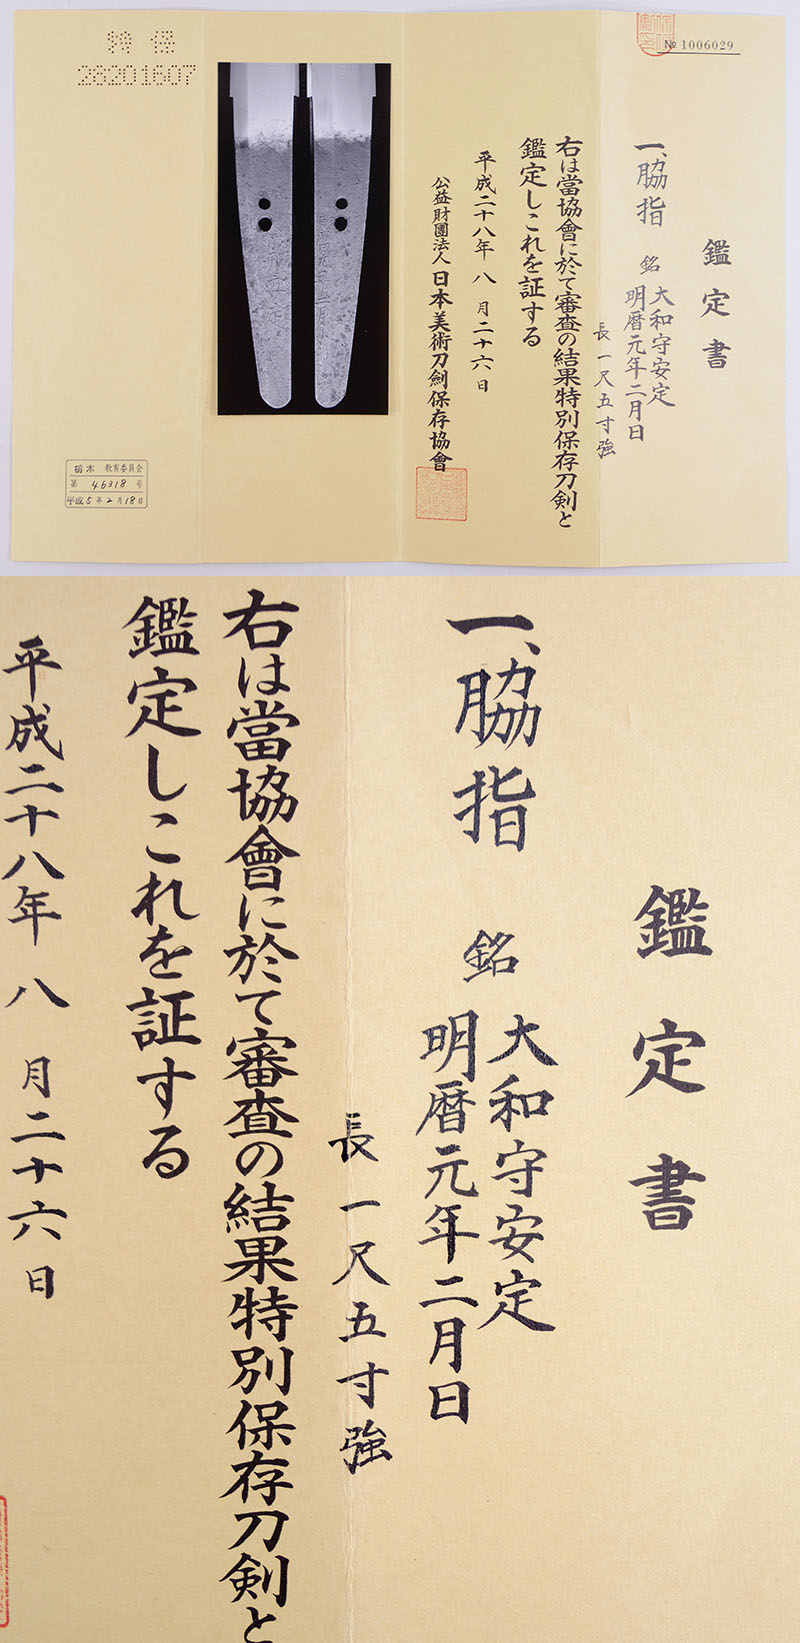 № 1006029
鑑定書
一、脇指
銘 大和守安定
明暦元年二月日
長一尺五寸強
右は當協會に於て審査の結果特別保存刀剣と
鑑定しこれを証する
平成二十八年 八 月二十六日
公益財團法人 日本美術刀劍保存協會
特保
28201607
栃木 教育委員会
第 46318 号
平成5年2月18日
鑑定書
一、脇指
銘 大和守安定
明暦元年二月日
長一尺五寸強
右は當協會に於て審査の結果特別保存刀剣と
鑑定しこれを証する
平成二十八年 八 月二十六日